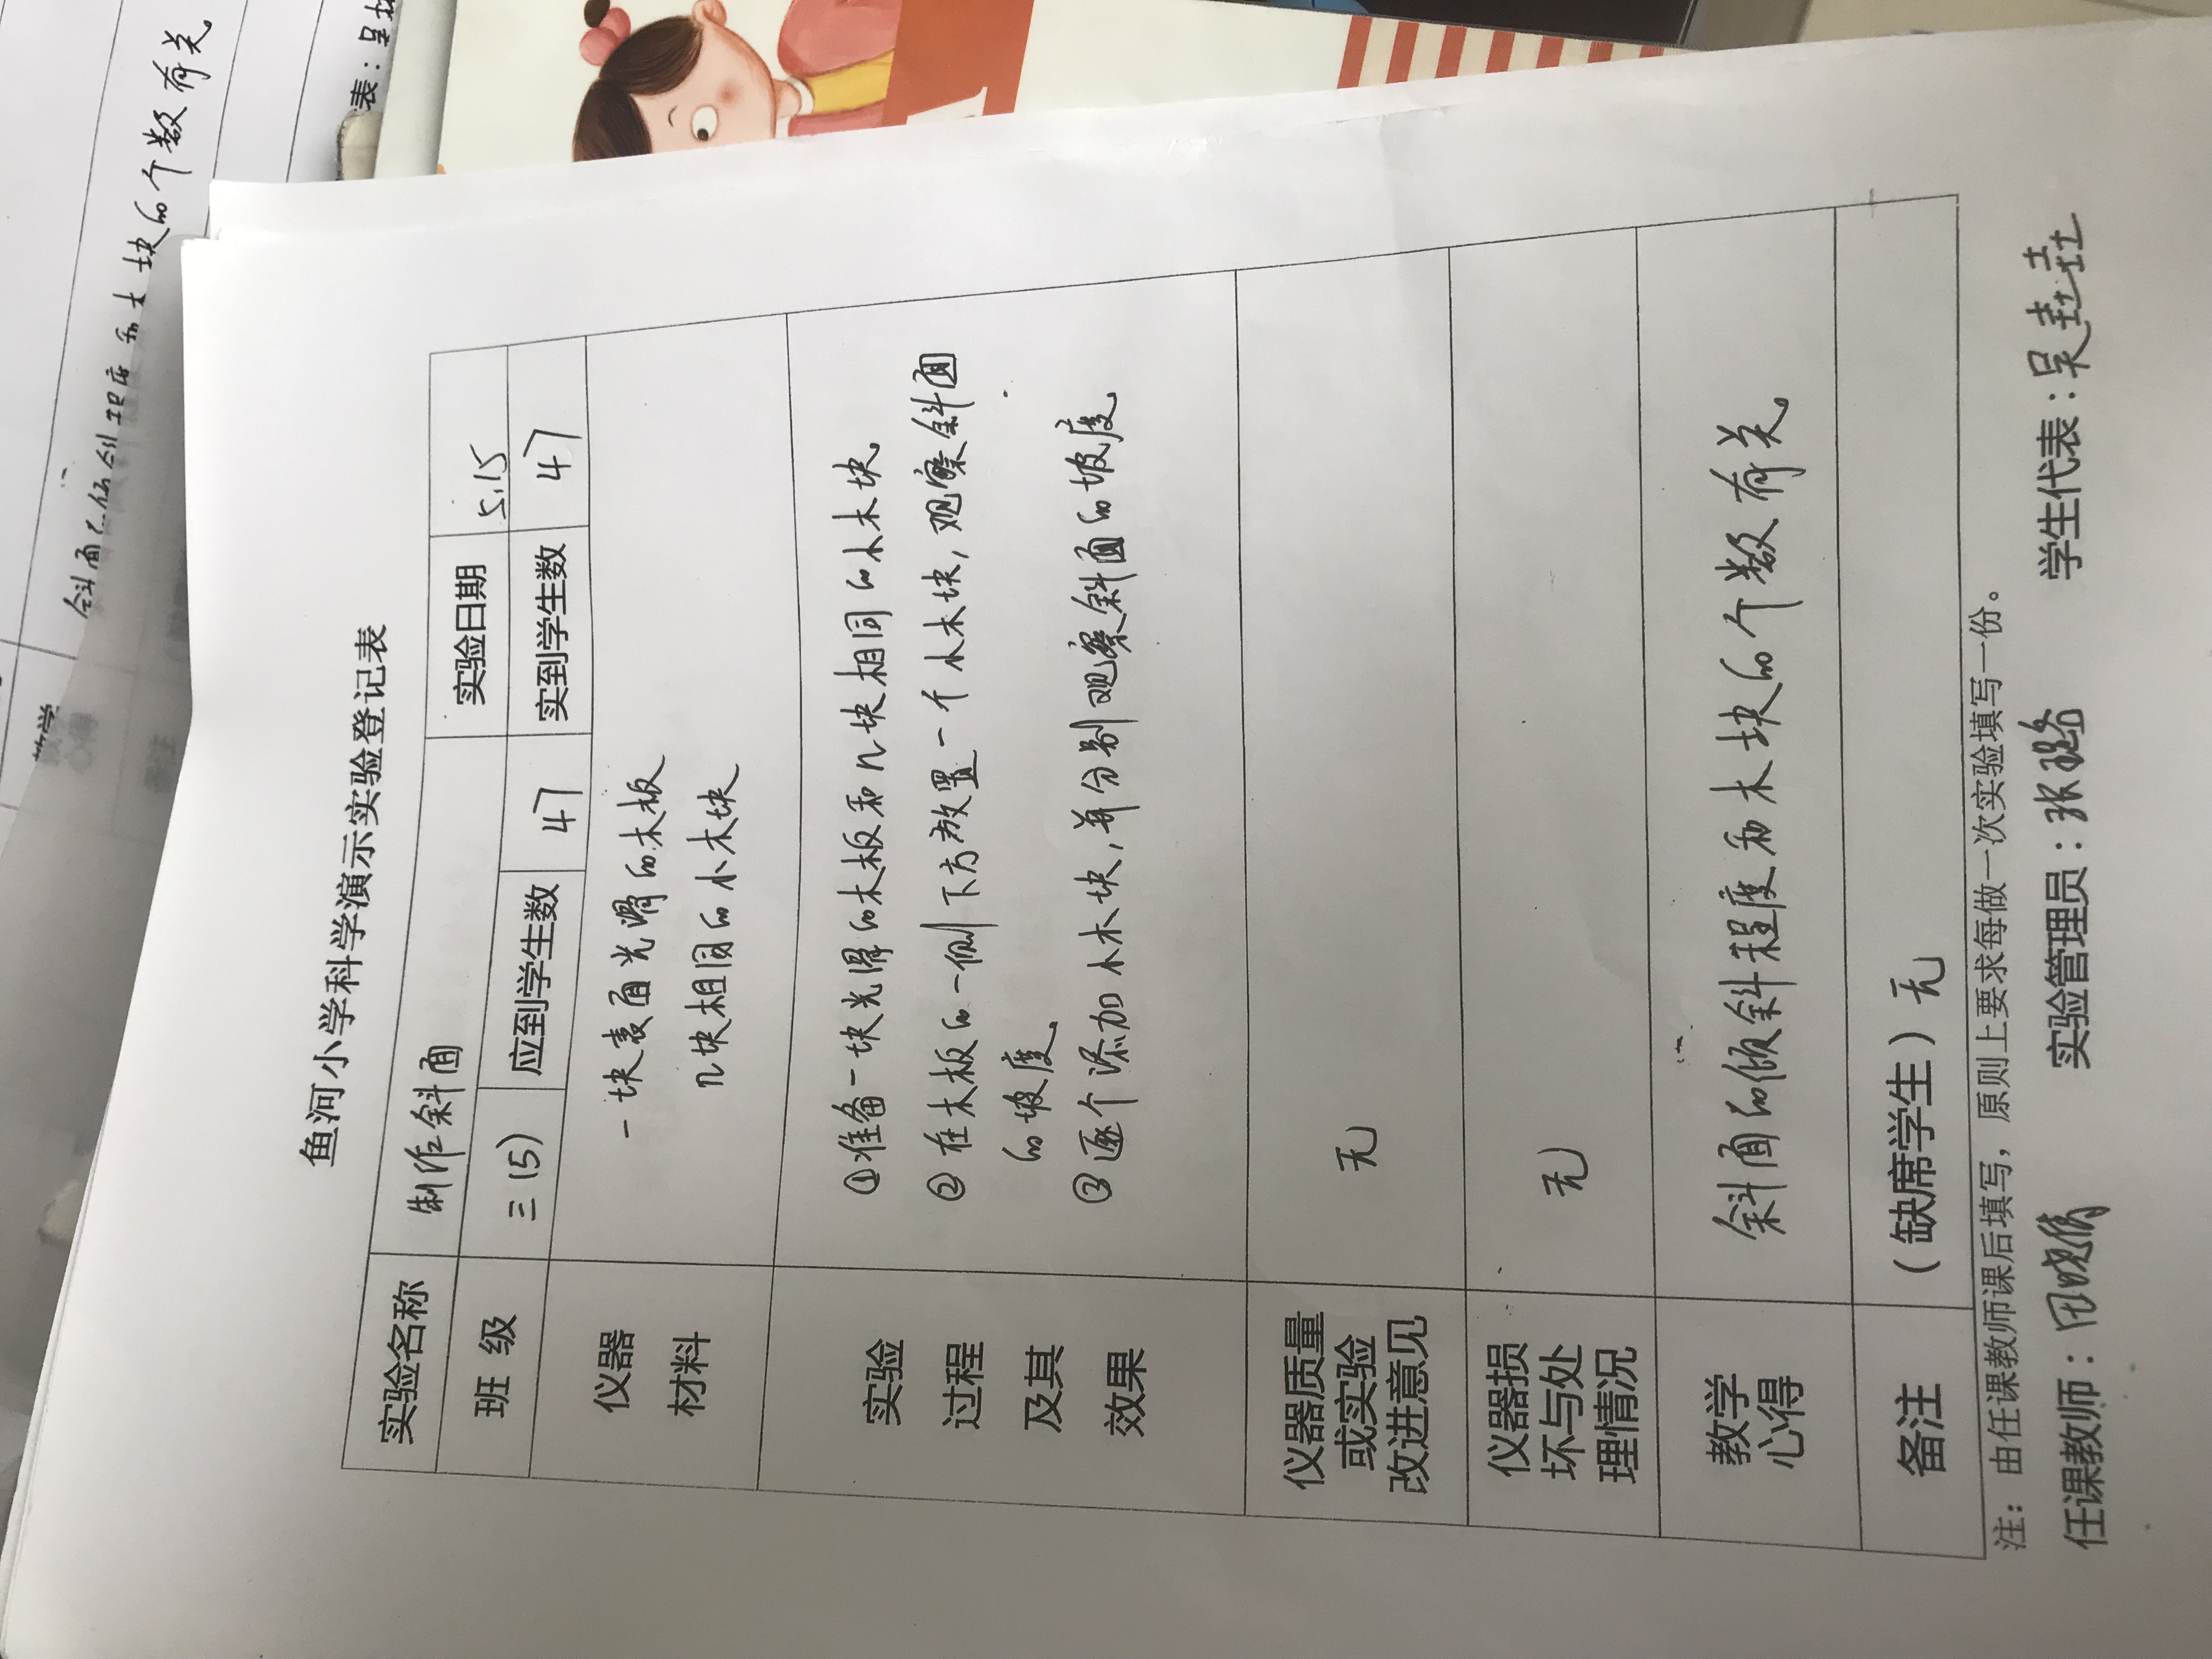 鱼河小学科学演示实验登记表
实验名称 制作斜面 实验日期 5.15
班 级 三(5) 应到学生数 47 实到学生数 47
仪器
材料
一块表面光滑的木板
几块相同的小木块
实验
过程
及其
效果
①准备一块光滑的木板和几块相同的小木块
②在木板的一侧下方放置一个小木块,观察斜面
的坡度
③逐个添加小木块,并分别观察斜面的坡度。
仪器质量
或实验
改进意见
无
仪器损
坏与处
理情况
无
教学
心得
斜面的倾斜程度和木块的个数有关。
备注 (缺席学生)无
注:由任课教师课后填写,原则上要求每做一次实验填写一份。
任课教师: 实验管理员:张璐 学生代表:吴垚垚
斜面的倾斜程度和木块的个数有关
教学
表:吴